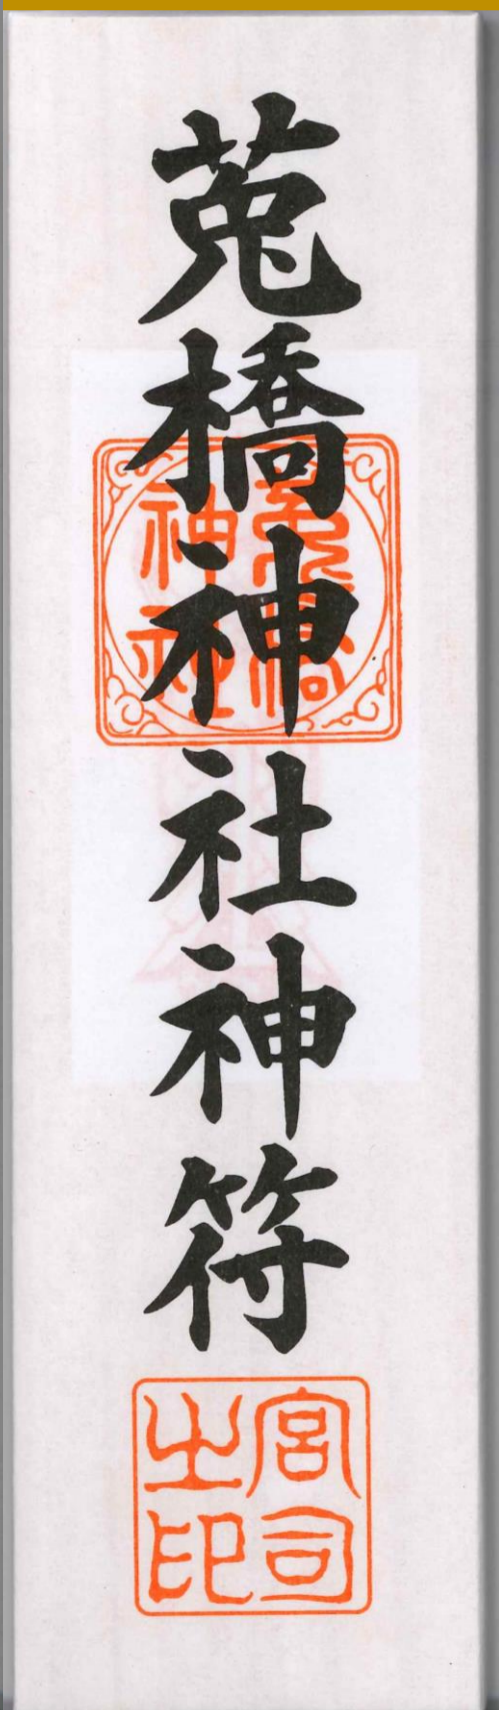 菟橋神社神符
菟橋神社
宮司之印